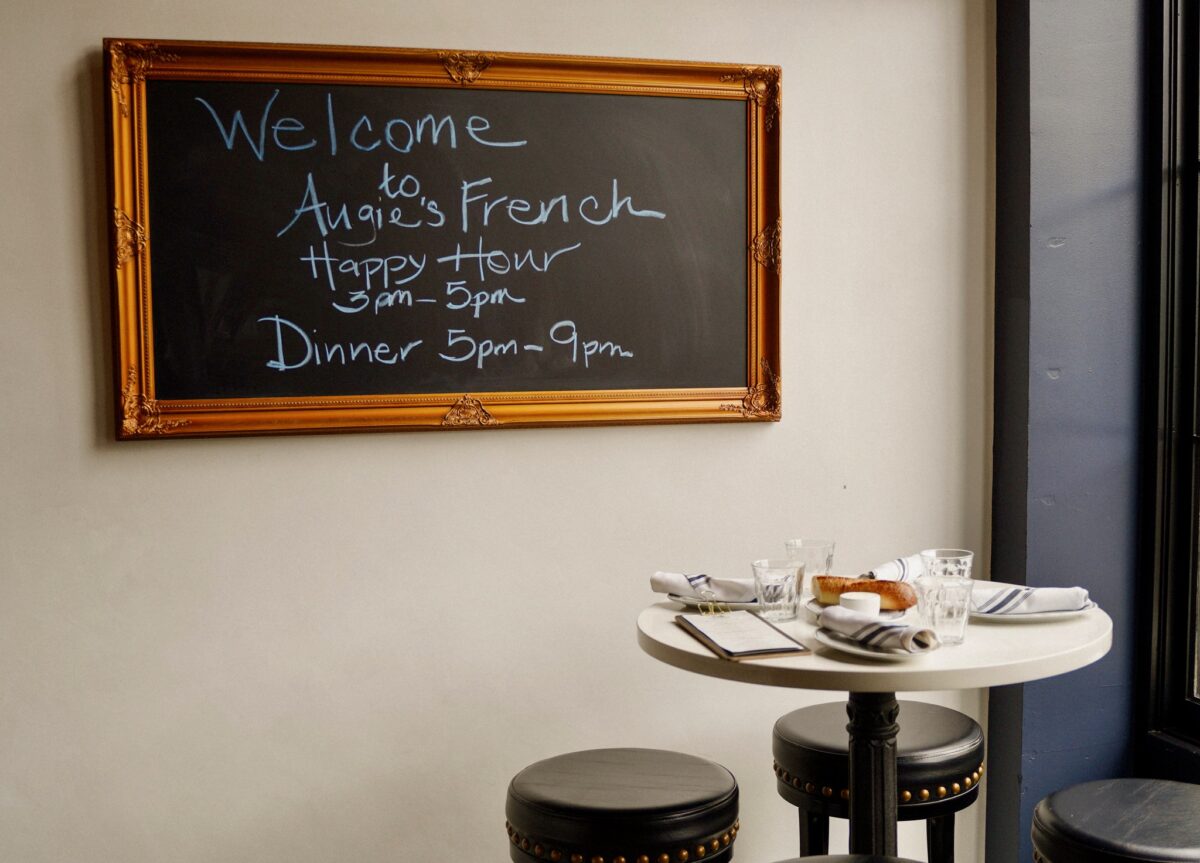 Welcome
to
Augie's French
Happy Hour
3pm - 5pm
Dinner 5pm - 9pm